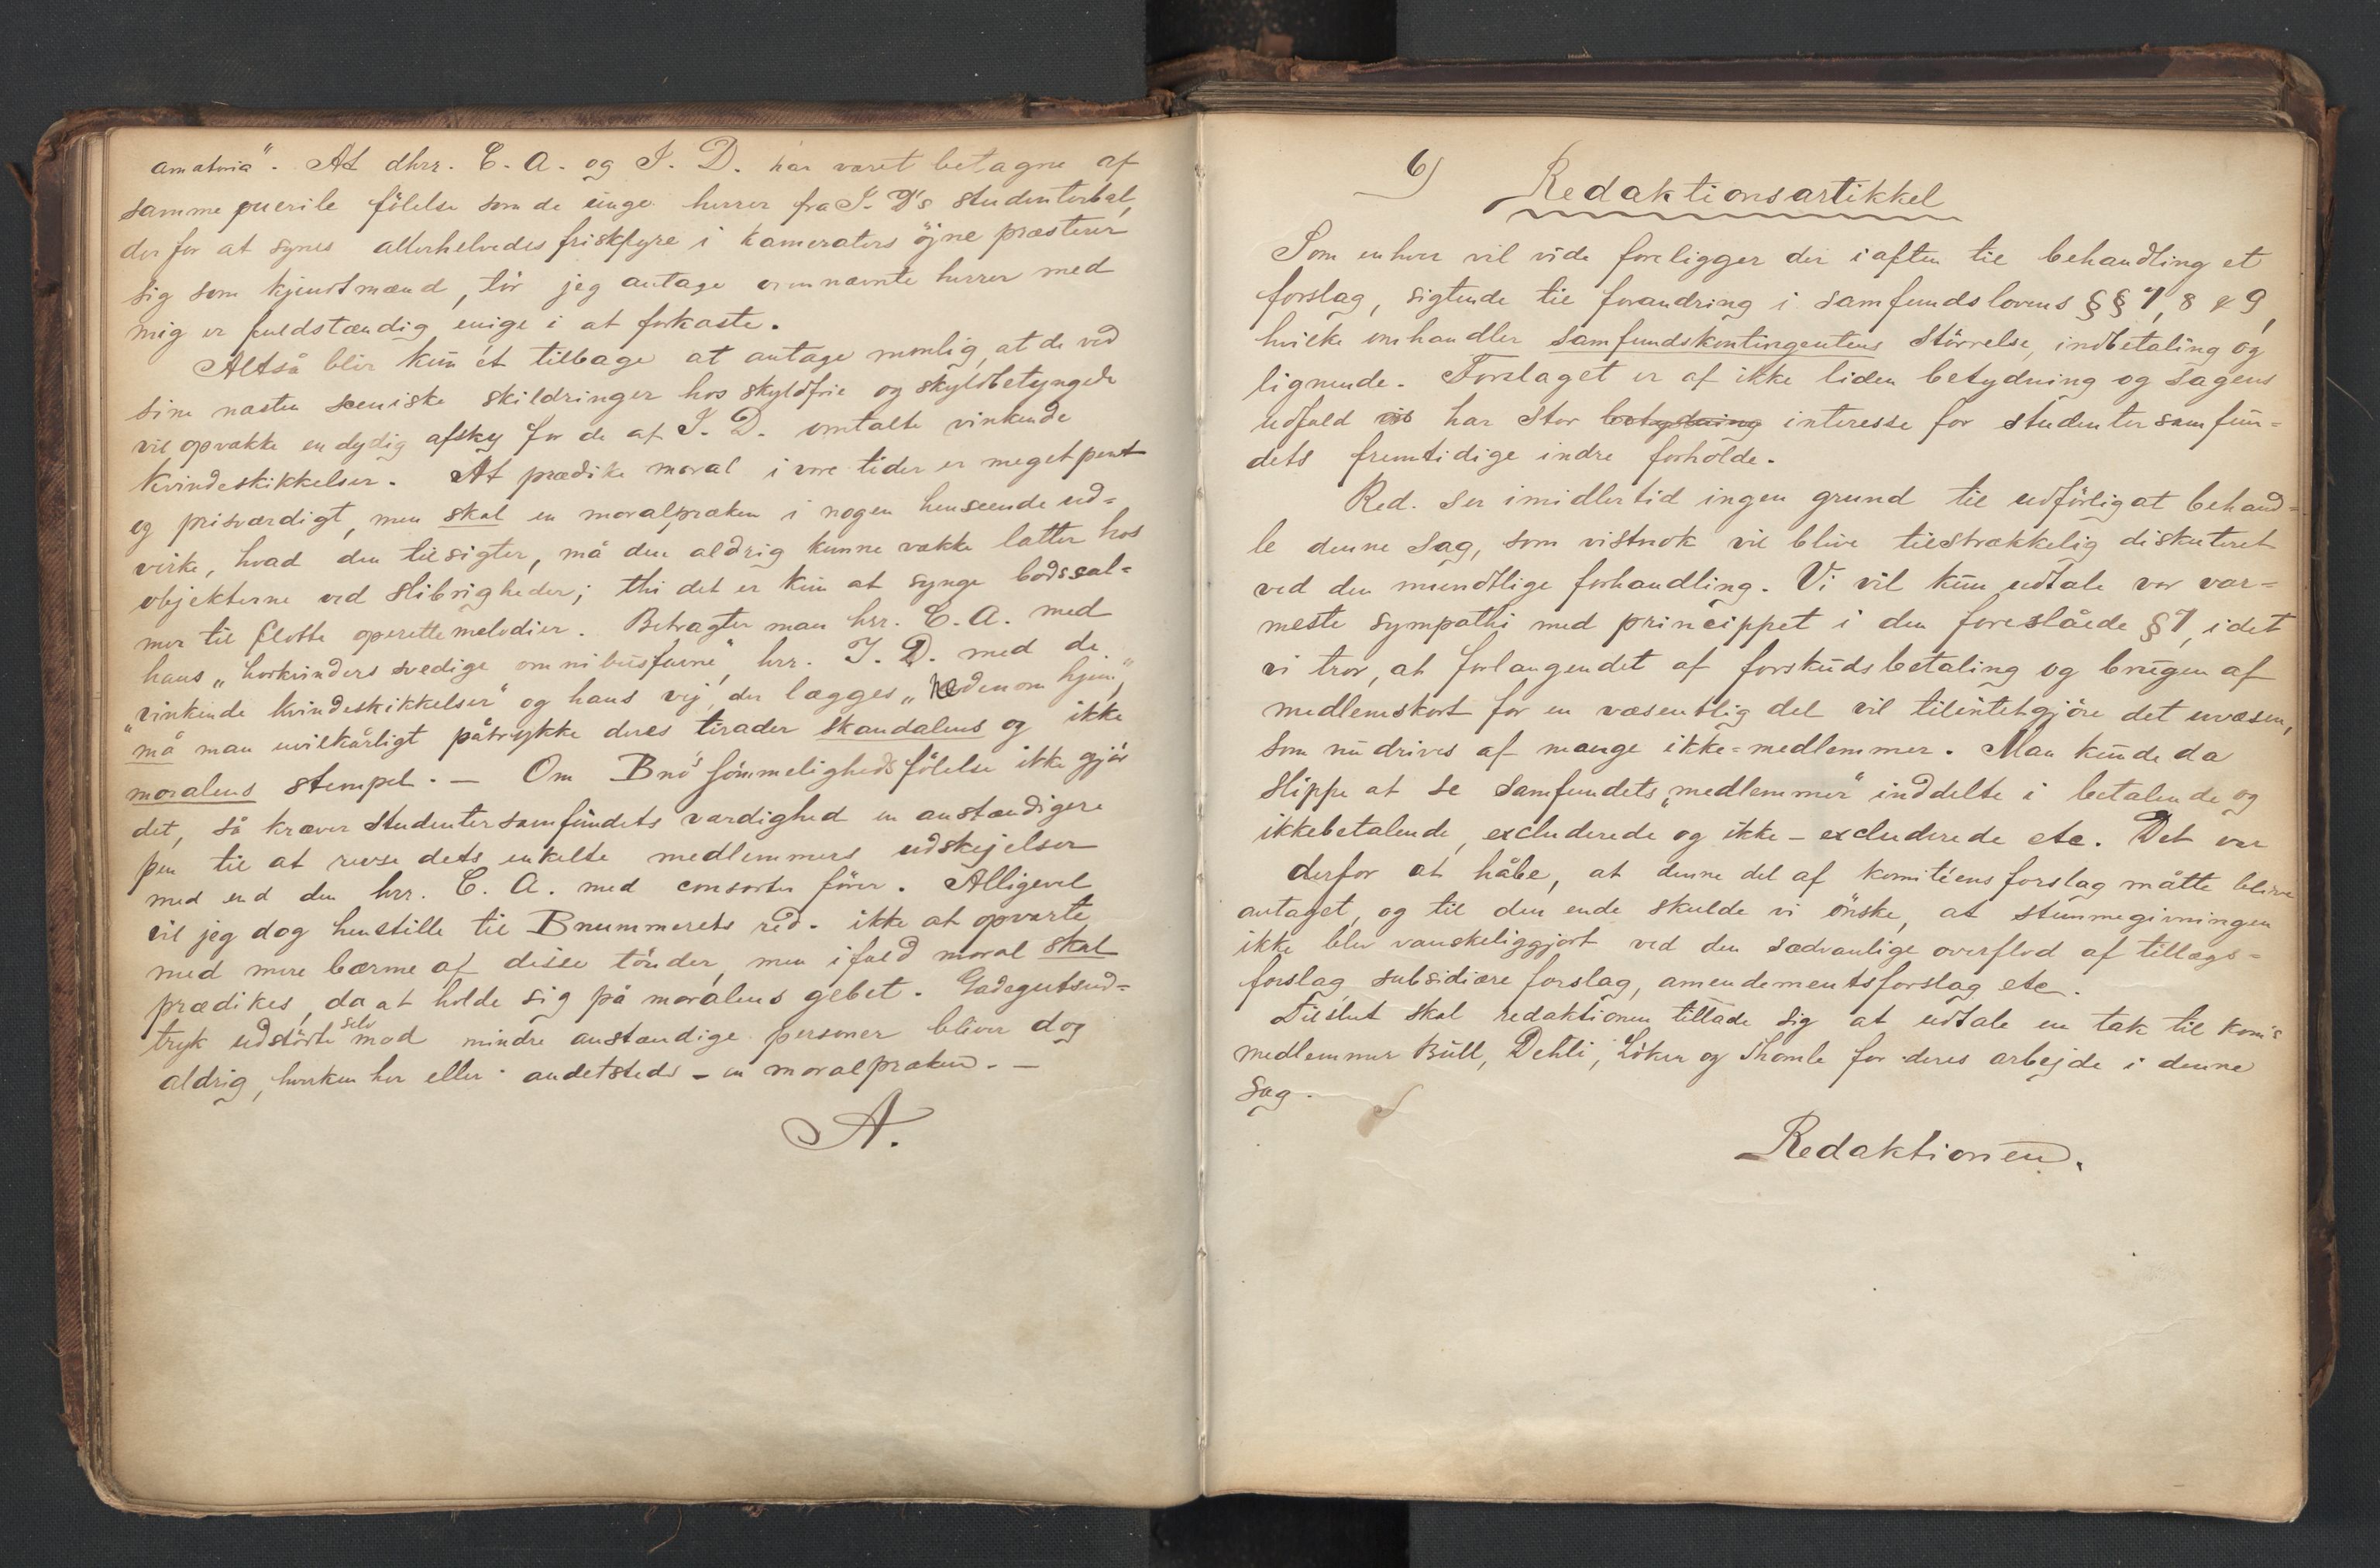 amatoria“. At dhrr. C. A. og I. D. har været betagne af
samme puerile fölelse som de unge herrer fra I. D's studenterbal,
der for at synes allerhelvedes friskfyre i kameraters öjne præsterer
sig som kjendtmænd, tör jeg antage ovennævnte herrer med
mig er fuldstændig enige i at forkaste.
Altså blir kun ét tilbage at antage nemlig, at de ved
sine næsten sceniske skildringer hos skyldfrie og skyldbetyngede
vil opvække en dydig afsky for de af I. D. omtalte vinkende
kvindeskikkelser. At prædike moral i vore tider er meget pent
og prisværdigt, men skal en moralpræken i nogen henseende ud=
virke, hvad den tilsigter, må den aldrig kunne vække latter hos
objekterne ved slibrigheder; thi det er kun at synge bodssal=
mer til flotte operettemelodier. Betragter man hrr. C. A. med
hans „horkvinders svedige omnibusfavne“, hrr. I. D. med de
„vinkende kvindeskikkelser“ og hans vej, der lægges „nedenom hjem“,
må man uvilkårligt påtrykke deres tirader skandalens og ikke
moralens stempel. — Om Bnos sömmelighedsfölelse ikke gjör
det, så kræver studentersamfundets værdighed en anstændigere
pen til at revse dets enkelte medlemmers udskejelser
med end den hrr. C. A. med consorter förer. Alligevel
vil jeg dog henstille til Bnummerets red. ikke at opvarte
med mere bærme af disse tönder, men ifald moral skal
prædikes, da at holde sig på moralens gebet. Gadegutsud=
tryk udstödte selv mod mindre anstændige personer bliver dog
aldrig, hverken her eller andetsteds – en moralpræken. —
A.
6) Redaktionsartikkel
Som enhver vil vide foreligger der iaften til behandling et
forslag, sigtende til forandring i samfundslovens §§ 7, 8 & 9,
hvilke omhandler samfundskontingentens störrelse, indbetaling og
lignende. Forslaget er af ikke liden betydning og sagens
udfald vis har stor betydning interesse for studentersamfun=
dets fremtidige indre forholde.
Red. ser imidlertid ingen grund til udförligat behand=
le denne sag, som vistnok vil blive tilstrækkelig diskuteret
ved den mundtlige forhandling. Vi vil kun udtale vor var=
meste sympathi med princippet i den foreslåede § 7, idet
vi tror, at forlangendet af forskudsbetaling og brugen af
medlemskort for en væsentlig del vil tilintetgjöre det uvæsen,
som nu drives af mange ikke=medlemmer. Man kunde da
slippe at se samfundets „medlemmer“ inddelte i betalende og
ikkebetalende, excluderede og ikke – excluderede etc. Det var
derfor at håbe, at denne del af komitéens forslag måtte blive
antaget, og til den ende skulde vi önske, at stemmegivningen
ikke blev vanskeliggjort ved den sædvanlige overflod af tillægs=
forslag subsidiære forslag, amendementsforslag etc.
Tilslut skal redaktionen tillade sig at udtale en tak til kom's
medlemmer Bull, Dehli, Löken og Thomle for deres arbejde i denne
sag.
Redaktionen.